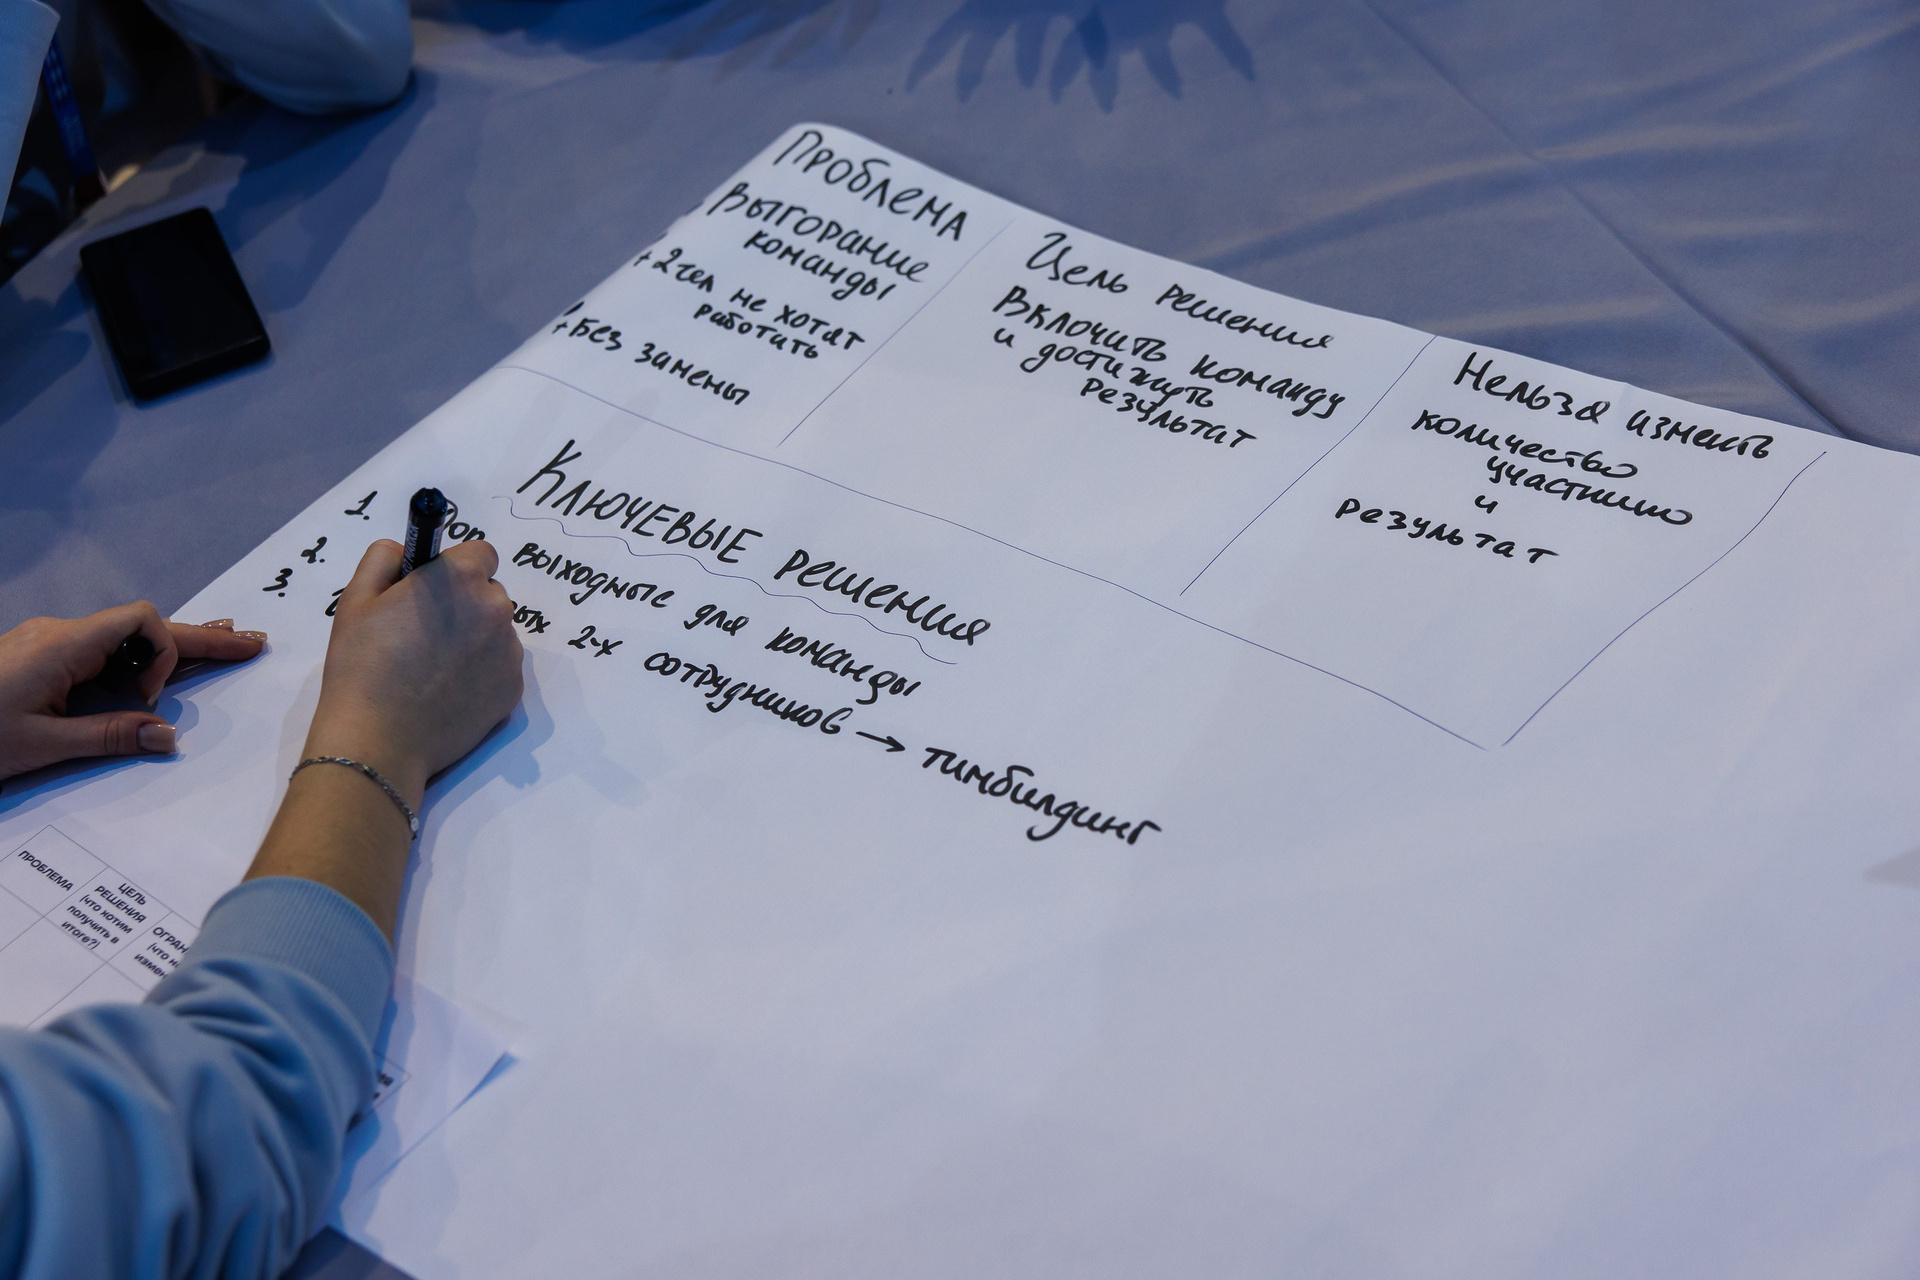 Проблема
Выгорание
команды
+ 2 чел не хотят
работать
+ Без замены
Цель решения
Включить команду
и достижуть
результат
Нельзя изменить
количество
участников
и
результат
Ключевые решения
1. выходные для команды
2. 2-х сотрудников → тимбилдинг
3.
ПРОБЛЕМА
ЦЕЛЬ
РЕШЕНИЯ
(что хотим
получить в
итоге?)